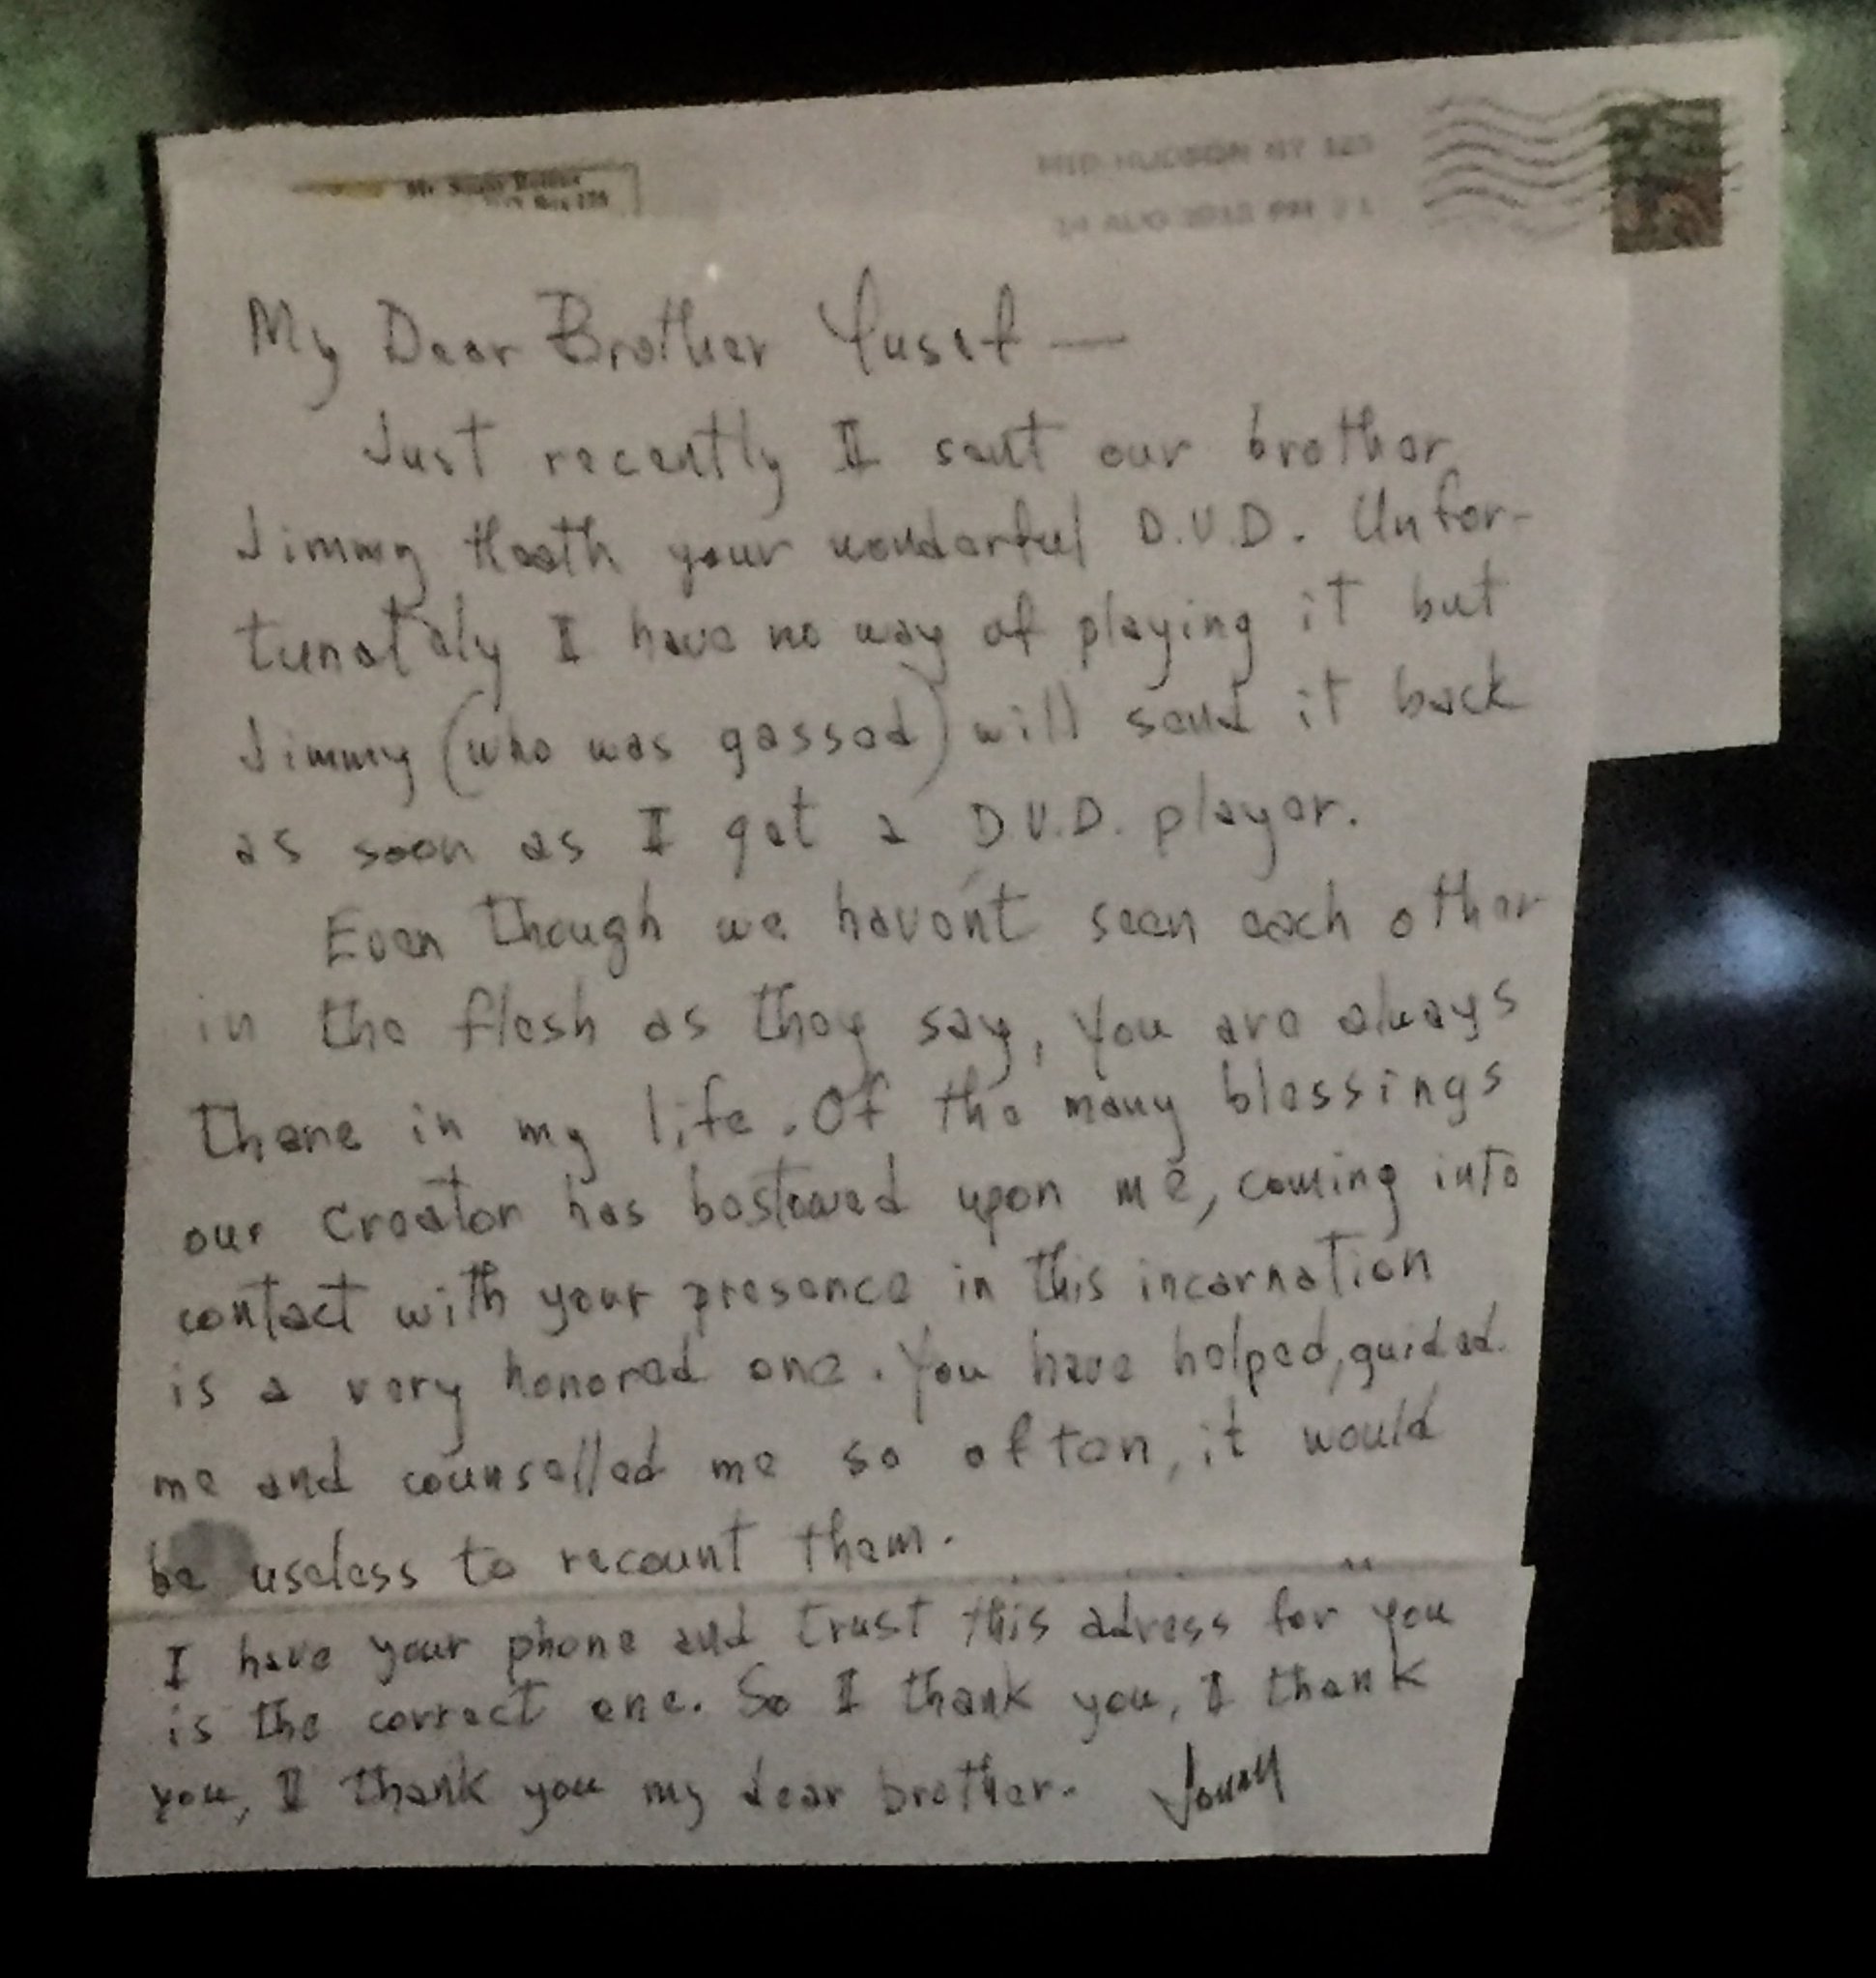 MID-HUDSON NY 125
AUG PM
My Dear Brother Yusef —
Just recently I sent our brother
Jimmy Heath your wonderful D.V.D. Unfor-
tunately I have no way of playing it but
Jimmy (who was gassed) will send it back
as soon as I get a D.V.D. player.
Even though we haven't seen each other
in the flesh as they say, you are always
there in my life. Of the many blessings
our Creator has bestowed upon me, coming into
contact with your presence in this incarnation
is a very honored one. You have helped, guided
me and counselled me so often, it would
be useless to recount them.
I have your phone and trust this adress for you
is the correct one. So I thank you, I thank
you, I thank you my dear brother. Sonny